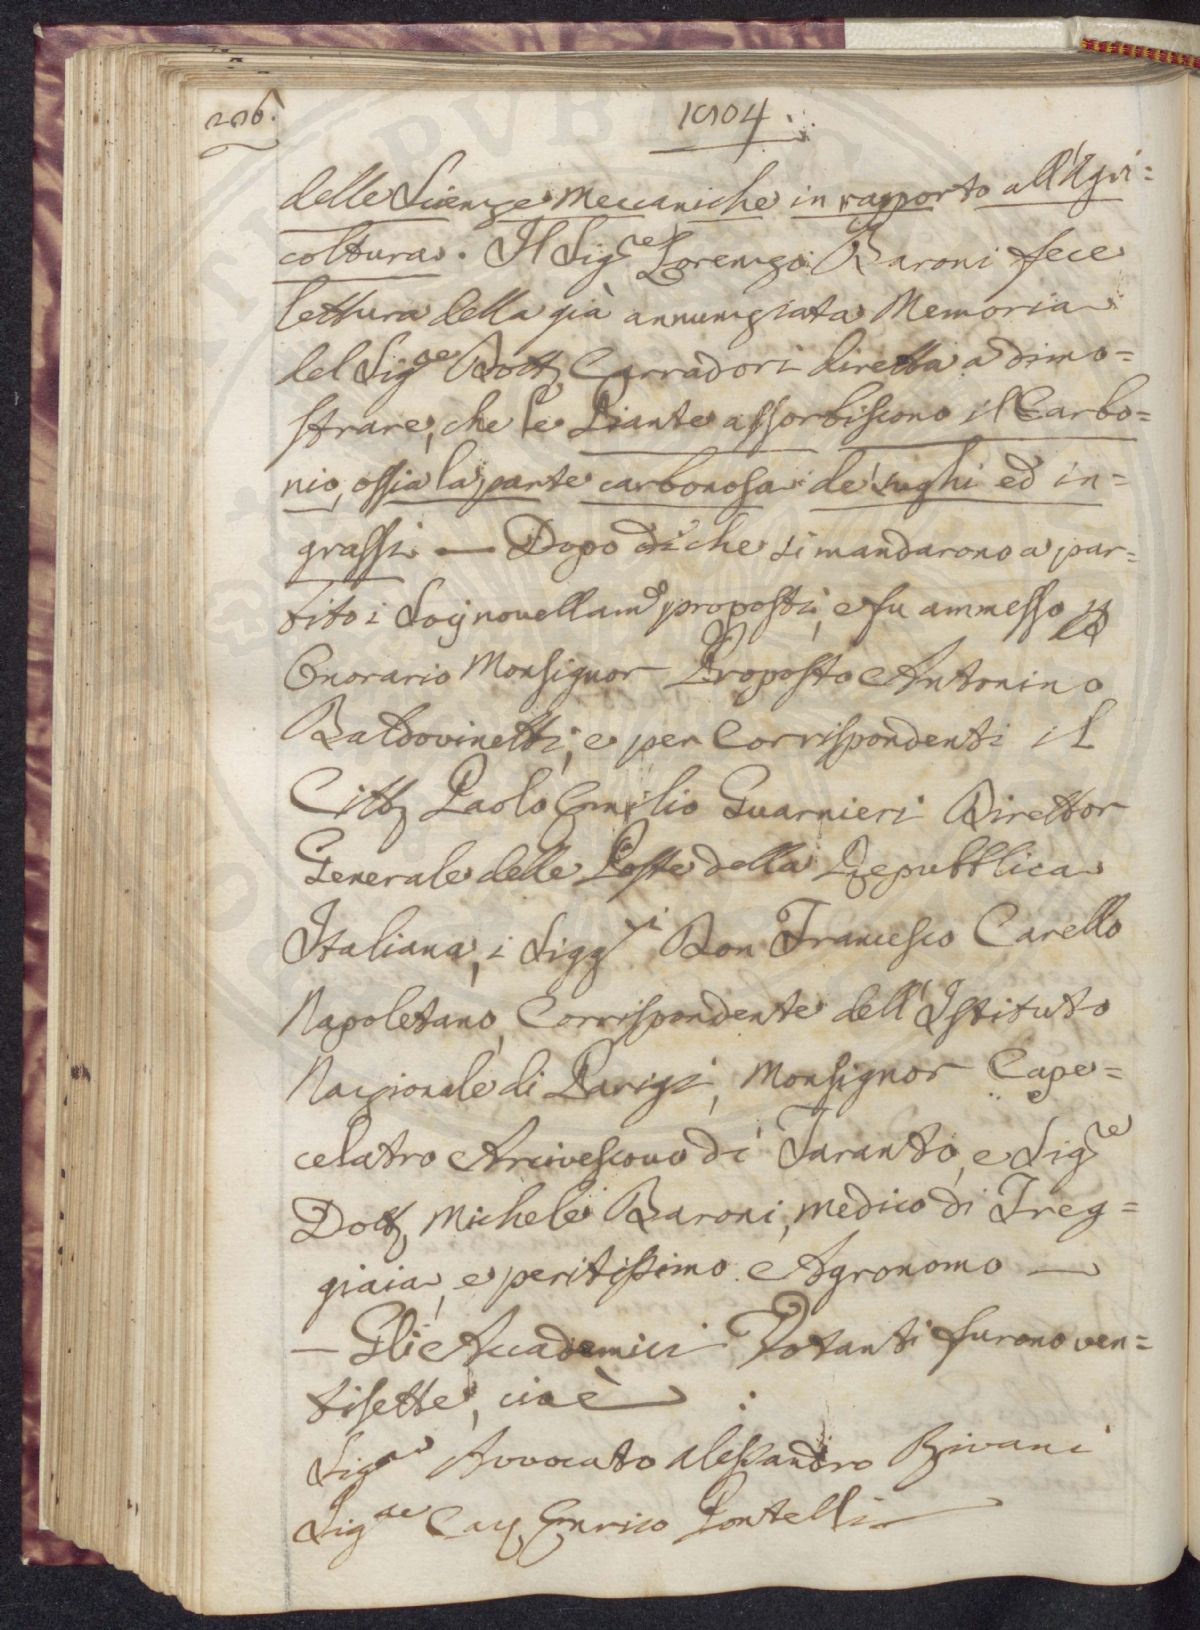 206. 1804.
delle Scienze Meccaniche in rapporto all'Agri=
coltura. Il Sig.re Lorenzo Baroni fece
lettura della già annunziata Memoria
del Sig.re Dott. Carradori diretta a dimo=
strare, che le Piante assorbiscono il Carbo=
nio, ossia la parte carbonosa de' sughi ed in=
grassi — Dopo di che si mandarono a par=
tito i Socj novellam.e proposti, e fu ammesso p
Onorario Monsignor Proposto Antonino
Baldovinetti, e per Corrispondenti il
Citt. Paolo Emilio Guarnieri Direttor
Generale delle Poste della Repubblica
Italiana, i Sigg.ri Don Francesco Carello
Napoletano, Corrispondente dell'Istituto
Nazionale di Parigi, Monsignor Cape=
celatro Arcivescovo di Taranto, e Sig.re
Dott. Michele Baroni, medico di Treg=
giaia, e peritissimo Agronomo —
— Gli Accademici Votanti furono ven=
tisette, cioè
Sig.re Avvocato Alessandro Rivani
Sig.re Cav. Enrico Pontelli